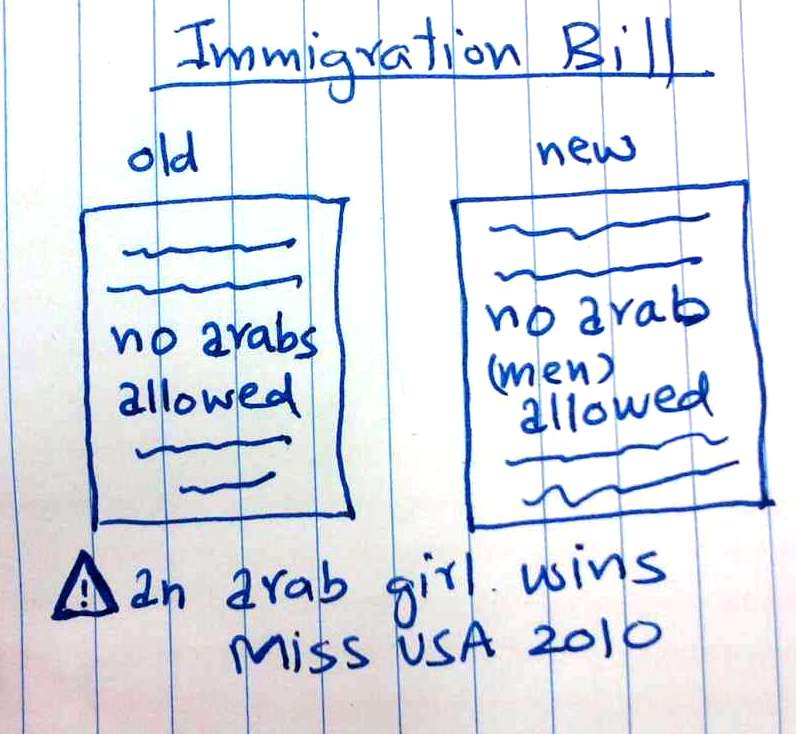 Immigration Bill
old
new
no arabs
allowed
no arab
(men)
allowed
⚠ an arab girl. wins
Miss USA 2010